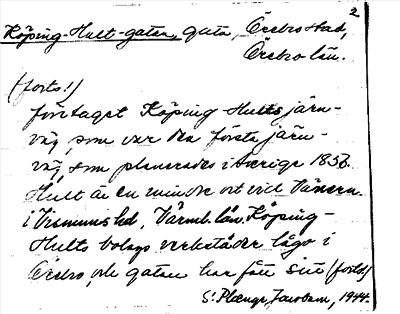 2
Köping-Hult-gatan, gata, Örebro stad,
Örebro län.
(forts!)
företaget Köping Hults järn-
väg, som var den första järn-
väg, som planerades i Sverige 1856.
Hult är en mindre ort vid Vänern
i Visnums hd, Värml. län. Köping-
Hults bolags verkstäder lågo i
Örebro, och gatan har fått sitt (forts)
S. Plænge Jacobson, 1944.